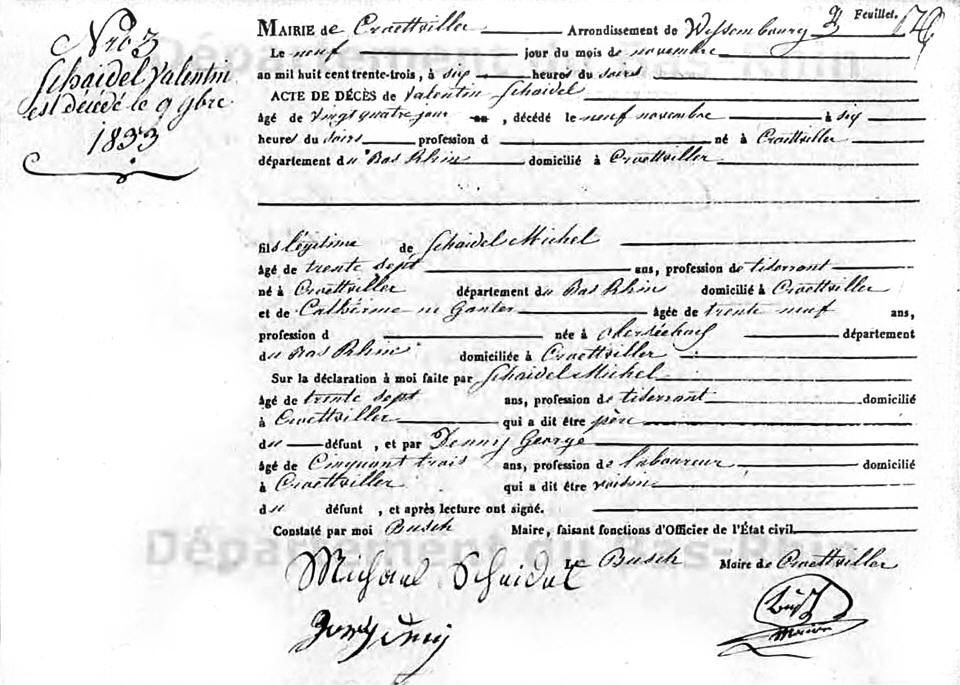 Nro 3
Schaidel Valentin
est décédé le 9 9bre
1833
Feuillet.
MAIRIE de Croettviller Arrondissement de Wissembourg
Le neuf jour du mois de novembre
an mil huit cent trente-trois, à six heures du soirs
ACTE DE DÉCÈS de Valentin Schaidel
âgé de vingt quatre jour , décédé le neuf novembre à six
heures du soirs profession d né à Croettviller
département du Bas Rhin domicilié à Croettviller
fils légitime de Schaidel Michel
âgé de trente sept ans, profession de tisserrant
né à Croettviller département du Bas Rhin domicilié à Croettviller
et de Catherine né Ganter âgée de trente neuf ans,
profession d née à département
du Bas Rhin domiciliée à Croettviller
Sur la déclaration à moi faite par Schaidel Michel
âgé de trente sept ans, profession de tisserrant domicilié
à Croettviller qui a dit être père
du défunt , et par Denny George
âgé de Cinquant trois ans, profession de laboureur domicilié
à Croettviller qui a dit être voisin
du défunt , et après lecture ont signé.
Constaté par moi Busch Maire, faisant fonctions d'Officier de l'État civil
Le Busch Maire de Croettviller
Michael Scheidel
Busch
Maire
Département du Bas-Rhin
Département du Bas-Rhin